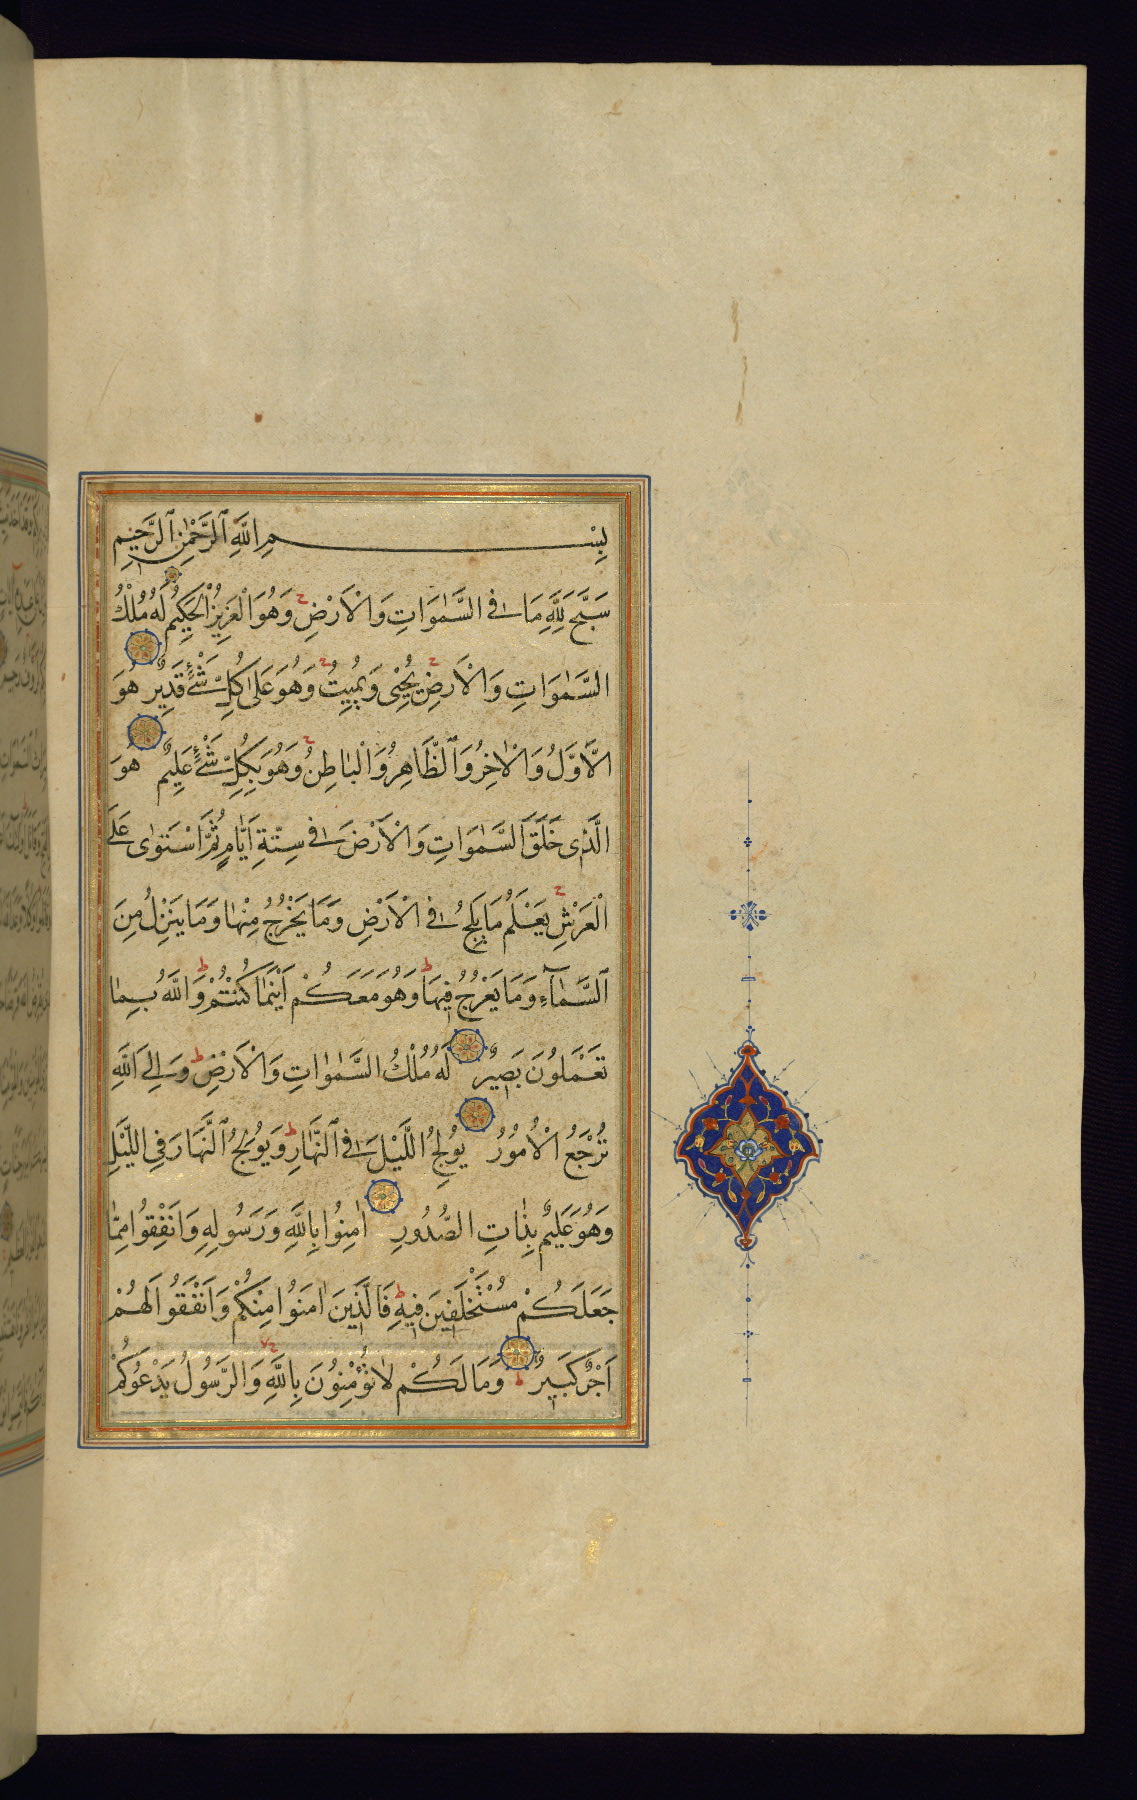 بِسْمِ اللَّهِ ٱلرَّحْمٰنِ ٱلرَّحِيمِ
سَبَّحَ لِلَّهِ مَا فِى السَّمٰوَاتِ وَالْاَرْضِ وَهُوَ الْعَزِيزُ الْحَكِيمُ لَهُ مُلْكُ
السَّمٰوَاتِ وَالْاَرْضِ يُحْيِى وَيُمِيتُ وَهُوَ عَلٰى كُلِّ شَيْءٍ قَدِيرٌ هُوَ
الْاَوَّلُ وَالْاٰخِرُ وَٱلظَّاهِرُ وَالْبَاطِنُ وَهُوَ بِكُلِّ شَيْءٍ عَلِيمٌ هُوَ
الَّذِى خَلَقَ السَّمٰوَاتِ وَالْاَرْضَ فِى سِتَّةِ اَيَّامٍ ثُمَّ اسْتَوٰى عَلَى
الْعَرْشِ يَعْلَمُ مَا يَلِجُ فِى الْاَرْضِ وَمَا يَخْرُجُ مِنْهَا وَمَا يَنْزِلُ مِنَ
ٱلسَّمَآءِ وَمَا يَعْرُجُ فِيهَا وَهُوَ مَعَكُمْ اَيْنَمَا كُنْتُمْ وَاللَّهُ بِمَا
تَعْمَلُونَ بَصِيرٌ لَهُ مُلْكُ السَّمٰوٰاتِ وَالْاَرْضِ وَاِلَى اللَّهِ
تُرْجَعُ الْاُمُورُ يُولِجُ اللَّيْلَ فِى ٱلنَّهَارِ وَيُولِجُ ٱلنَّهَارَ فِى اللَّيْلِ
وَهُوَ عَلِيمٌ بِذَاتِ الصُّدُورِ اٰمِنُوا بِاللَّهِ وَرَسُولِهِ وَاَنْفِقُوا مِمَّا
جَعَلَكُمْ مُسْتَخْلَفِينَ فِيهِ فَالَّذِينَ اٰمَنُوا مِنْكُمْ وَاَنْفَقُوا لَهُمْ
اَجْرٌ كَبِيرٌ وَمَا لَكُمْ لَا تُؤْمِنُونَ بِاللَّهِ وَالرَّسُولُ يَدْعُوكُمْ